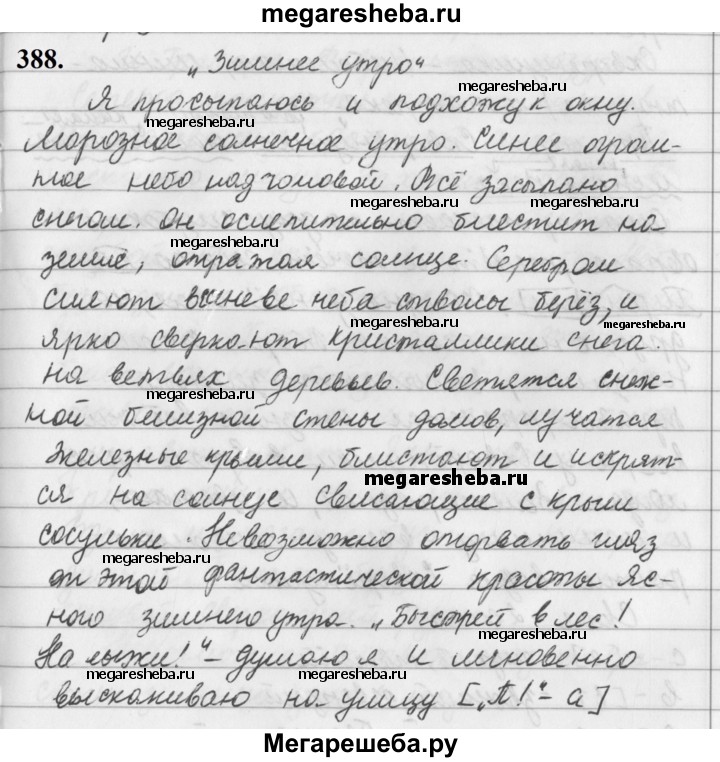 megaresheba.ru
388. „Зимнее утро“
megaresheba.ru
Я просыпаюсь и подхожу к окну.
megaresheba.ru
Морозное солнечное утро. Синее огром-
ное небо над головой. Всё засыпано
megaresheba.ru megaresheba.ru
снегом. Он ослепительно блестит на
megaresheba.ru
земле, отражая солнце. Серебром
сияют в синеве неба стволы берёз, и
megaresheba.ru megaresheba.ru
ярко сверкают кристаллики снега
на ветвях деревьев. Светятся снеж-
megaresheba.ru
ной белизной стены домов, лучатся
железные крыши, блистают и искрят-
megaresheba.ru
ся на солнце свисающие с крыш
сосульки. Невозможно оторвать глаз
megaresheba.ru
от этой фантастической красоты яс-
ного зимнего утра. „Быстрей в лес!
megaresheba.ru
На лыжи!“ – думаю я и мгновенно
megaresheba.ru
выскакиваю на улицу [„П!“ – а]
megaresheba.ru
Мегарешеба.ру